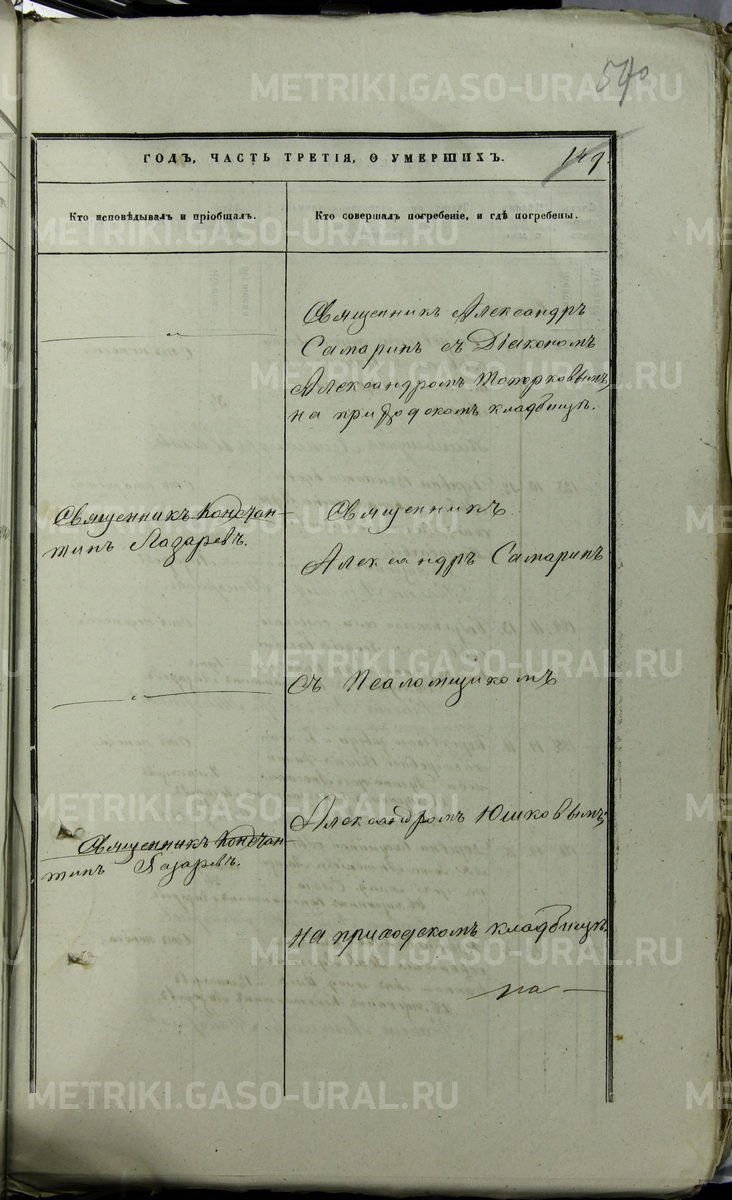 540
ГОДЪ, ЧАСТЬ ТРЕТІЯ, О УМЕРШИХЪ.
149.
Кто исповѣдывалъ и пріобщалъ.
Кто совершалъ погребеніе, и гдѣ погребены.
Священникъ Александръ
Самаринъ съ Діакономъ
Александромъ Топорковымъ,
на приходскомъ кладбищѣ.
Священникъ Констан-
тинъ Лазаревъ.
Священникъ
Александръ Самаринъ
съ Псаломщикомъ
Александромъ Юшковымъ,
Священникъ Констан-
тинъ Лазаревъ.
на приходскомъ кладбищѣ.
METRIKI.GASO-URAL.RU